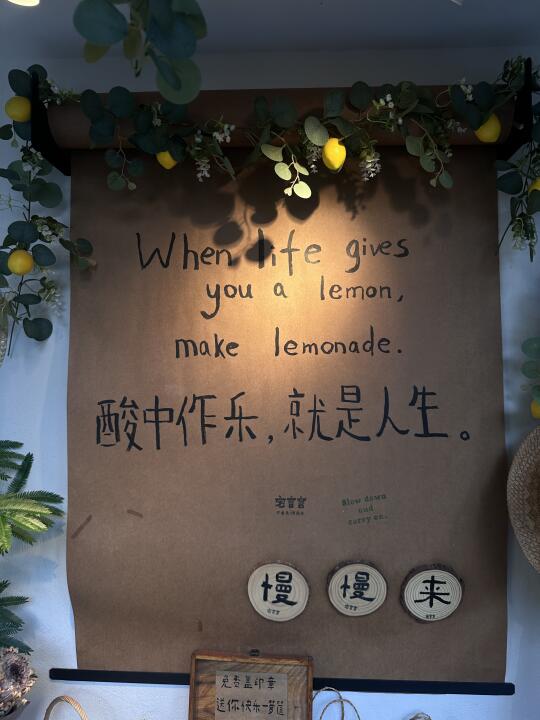 When life gives
you a lemon,
make lemonade.
酸中作乐，就是人生。
Slow down
and
carry on.
慢 慢 来
免费盖印章
送你快乐一箩筐